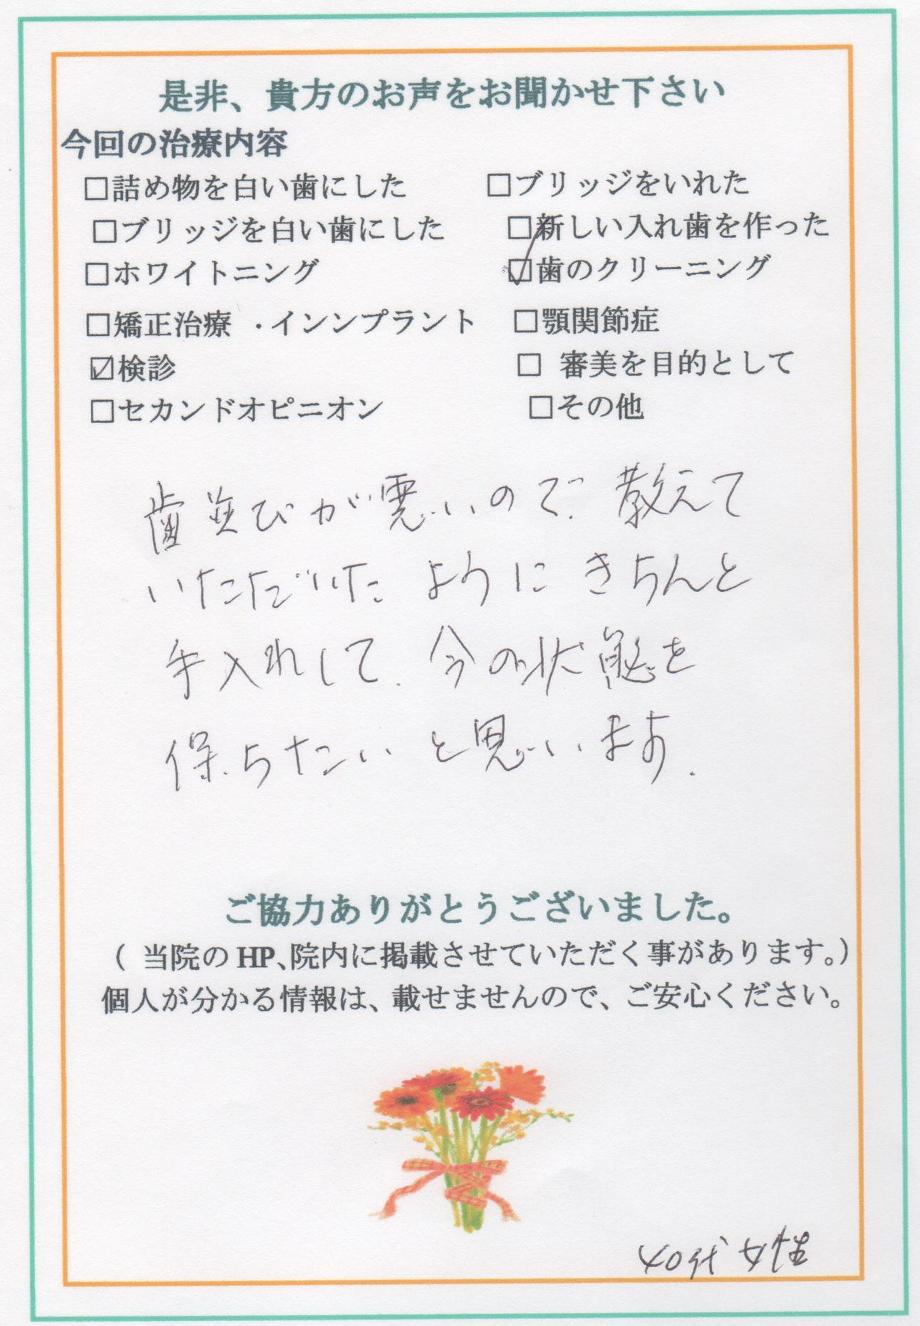 是非、貴方のお声をお聞かせ下さい
今回の治療内容
□詰め物を白い歯にした □ブリッジをいれた
□ブリッジを白い歯にした □新しい入れ歯を作った
□ホワイトニング ☑歯のクリーニング
□矯正治療 ・インンプラント □顎関節症
☑検診 □ 審美を目的として
□セカンドオピニオン □その他
歯並びが悪いので、教えて
いただいた ように きちんと
手入れして、今の状態を
保ちたい と思います.
ご協力ありがとうございました。
( 当院の HP、院内に掲載させていただく事があります。)
個人が分かる情報は、載せませんので、ご安心ください。
40代 女性